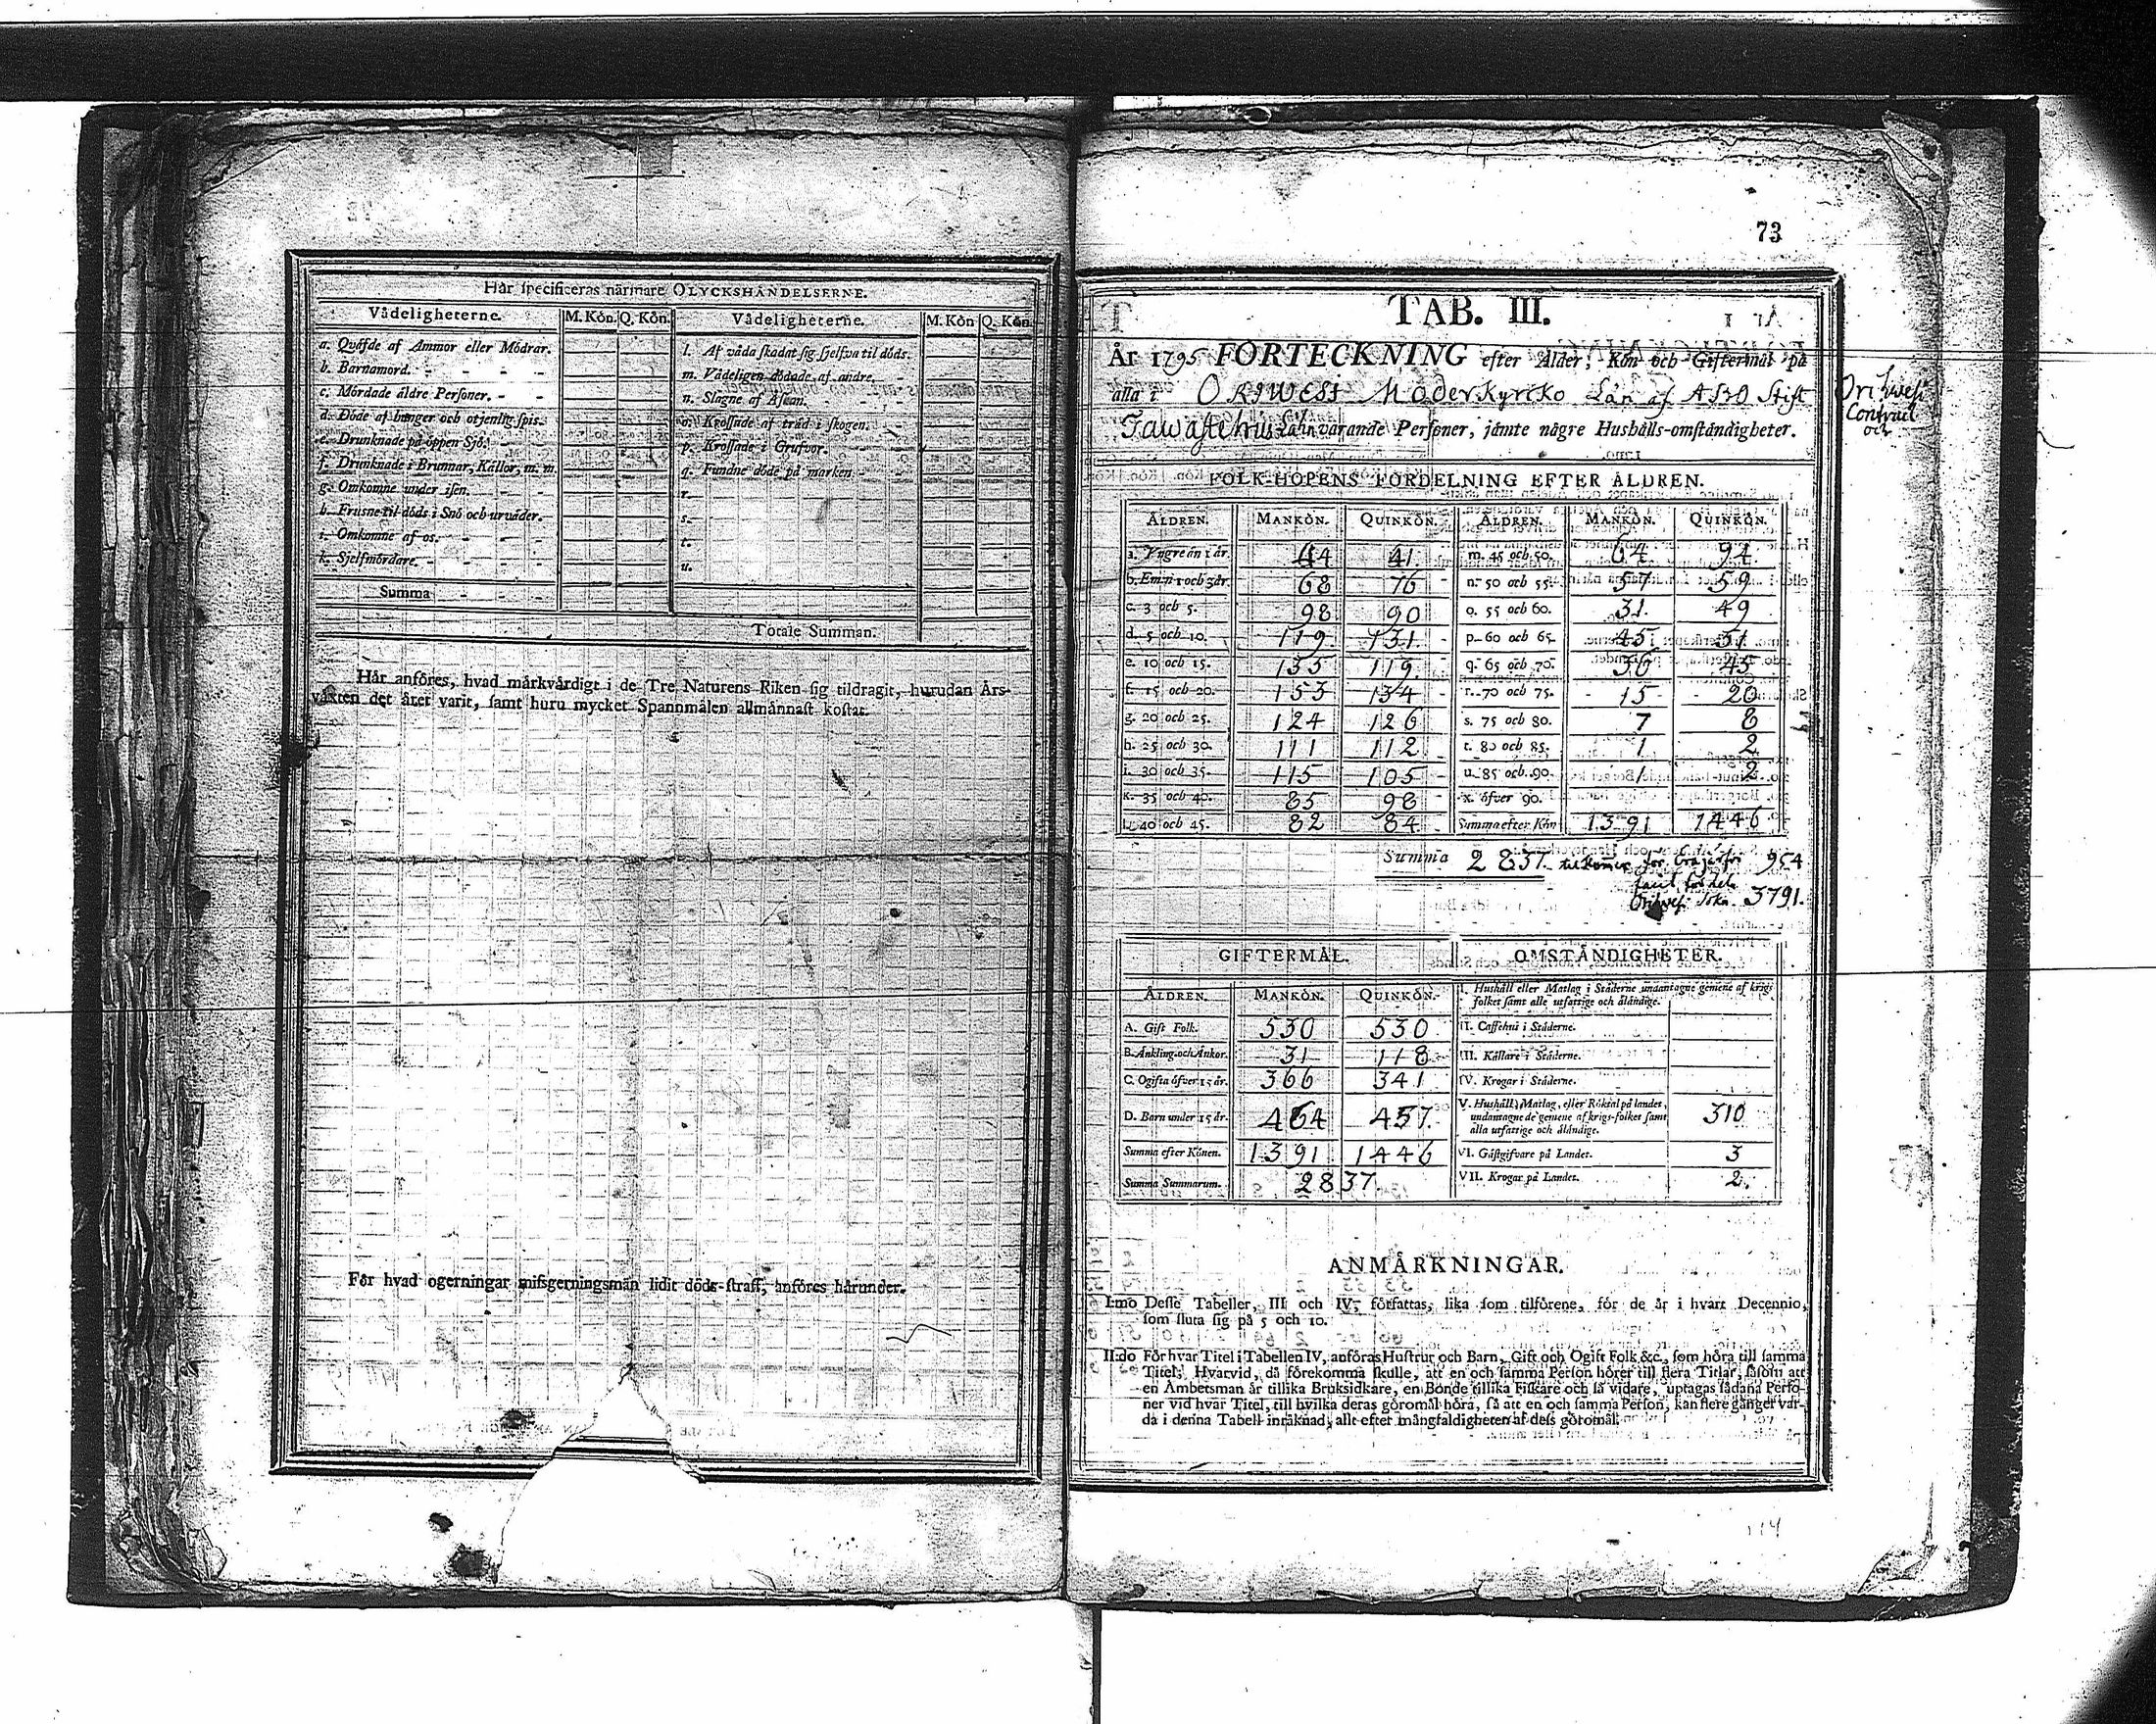 Hår specificeras nårmare OLYCKSHÄNDELSERNE.
Vådeligheterne. M. Kön. Q. Kön. Vådeligheterne. M. Kön Q. Kön.
a. Qväfde af Ammor eller Mödrar.
b. Barnamord.
c. Mördade äldre Personer.
d. Döde af hunger och otjenlig spis.
e. Drunknade på öppen Sjö.
f. Drunknade i Brunnar, Källor, m. m.
g. Omkomne under isen.
h. Frusne til döds i Snö och urväder.
i. Omkomne af os.
k. Sjelfmördare.
Summa
l. Af våda skadat sig sjelfva til döds.
m. Vådeligen dödade af andre.
n. Slagne af Åskan.
o. Krossade af träd i skogen.
p. Krossade i Grufvor.
q. Fundne döde på marken
r.
s.
t.
u.
Totale Summan.
Hår anföres, hvad mårkvårdigt i de Tre Naturens Riken sig tildragit, hurudan Års-
våxten det året varit, samt huru mycket Spannmålen allmånnast kostat.
För hvad ogerningar missgerningsmän lidit döds-straff, anföres hårunder.
73
TAB. III.
År 1795 FÖRTECKNING efter Ålder, Kön och Giftermål på
alla i ORIWESI Moderkyrcko Län af ABO Stift
Tawastehus Län varande Personer, jämte någre Hushålls-omständigheter.
Orihvesi
Contract
och
FOLK-HOPENS FÖRDELNING EFTER ÅLDREN.
ÅLDREN. MANKÖN. QUINKÖN. ÅLDREN. MANKÖN. QUINKÖN.
a. Yngre än 1 år. 44 41. m. 45 och 50. 64 94
b. Emn 1 och 3 år. 68 76 n. 50 och 55. 57 59
c. 3 och 5. 98 90 o. 55 och 60. 31 49
d. 5 och 10. 119 131 p. 60 och 65. 45 51
e. 10 och 15. 135 119 q. 65 och 70. 36 45
f. 15 och 20. 153 134 r. 70 och 75. 15 20
g. 20 och 25. 124 126 s. 75 och 80. 7 8
h. 25 och 30. 111 112 t. 80 och 85. 1 2
i. 30 och 35. 115 105 u. 85 och 90. 1 2
k. 35 och 40. 85 98 x. öfver 90.
l. 40 och 45. 82 84 Summa efter Kön 1391 1446
Summa 2837. tilkommer för 954
3791.
GIFTERMÅL. OMSTÄNDIGHETER.
ÅLDREN. MANKÖN. QUINKÖN.
A. Gift Folk. 530 530
B. Änkling. och Änkor. 31 118
C. Ogifta öfver 15 år. 366 341
D. Barn under 15 år. 464 457.
Summa efter Könen. 1391 1446
Summa Summarum. 2837.
I. Hushåll eller Matlag i Städerne undantagne gemene af krigs
folket samt alle utfattige och åländige.
II. Caffehus i Städerne.
III. Källare i Städerne.
IV. Krogar i Städerne.
V. Hushåll, Matlag, eller Röktal på landet,
undantagne de gemene af krigs-folket samt
alla utfattige och åländige. 310
VI. Gästgifvare på Landet. 3
VII. Krogar på Landet. 2.
ANMÅRKNINGAR.
I:mo Desse Tabeller, III och IV, författas, lika som tilförene, för de år i hvart Decennio,
som sluta sig på 5 och 10.
II:do För hvar Titel i Tabellen IV, anföras Hustrur och Barn, Gift och Ogift Folk &c., som höra till samma
Titel; Hvarvid, då förekomma skulle, att en och samma Person hörer till flera Titlar, såsom att
en Åmbetsman år tillika Bruksidkare, en Bonde tillika Fiskare och så vidare, uptagas sådana Perso-
ner vid hvar Titel, till hvilka deras göromål höra, så att en och samma Person, kan flere gånger var-
da i denna Tabell inräknad, allt efter mångfaldigheten af dess göromål.
114